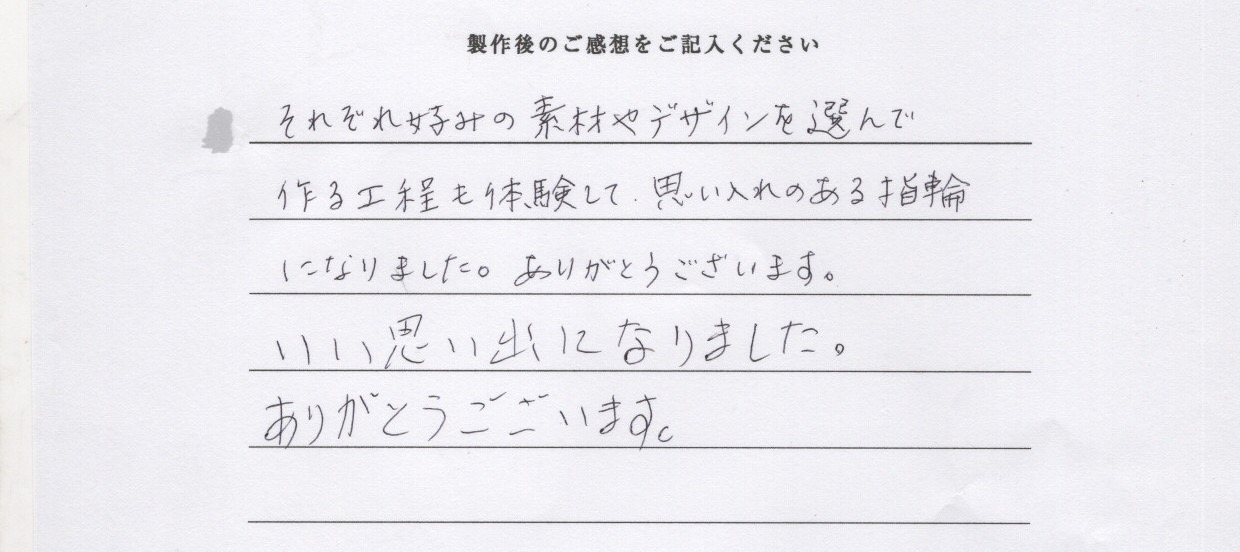 製作後のご感想をご記入ください
それぞれ好みの素材やデザインを選んで
作る工程も体験して、思い入れのある指輪
になりました。ありがとうございます。
いい思い出になりました。
ありがとうございます。